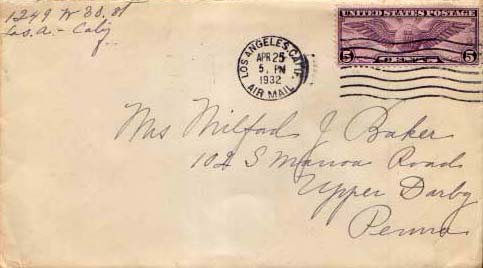 1249 W 38. st
Los. a - Calif
UNITED STATES POSTAGE
5 CENTS 5
LOS ANGELES, CALIF.
APR 25
5. PM
1932
AIR MAIL
Mrs Milford J Baker
102 S Manoa Road
Upper Darby
Penna